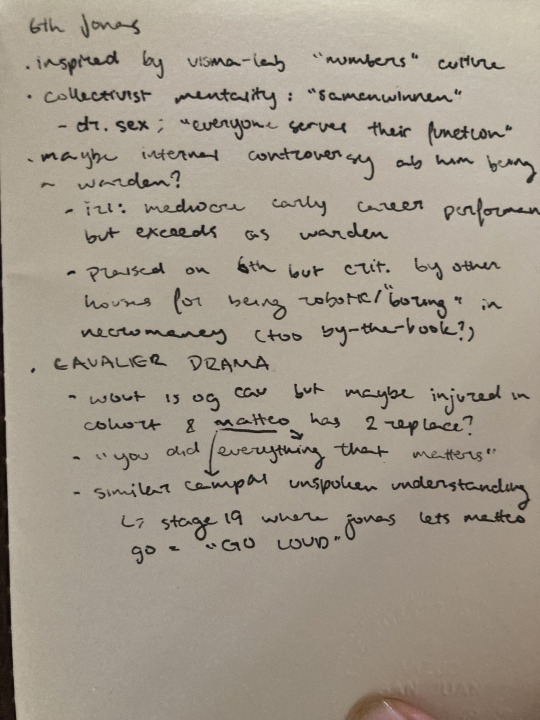 6th Jonas
. inspired by visma-lab "numbers" culture
· collectivist mentality: "samenwinnen"
- dr. sex; "everyone serves their function"
· maybe internal controversy ab him being
~ warden?
- irl: mediocre early career performan
but exceeds as warden
- praised on 6th but crit. by other
houses for being robotic/"boring" in
necromancy (too by-the-book?)
. CAVALIER DRAMA
- wout is og cav but maybe injured in
cohort & matteo has 2 replace?
- "you did everything that matters"
- similar campal unspoken understanding
↳ stage 19 where jonas lets matteo
go = "GO LOUD"